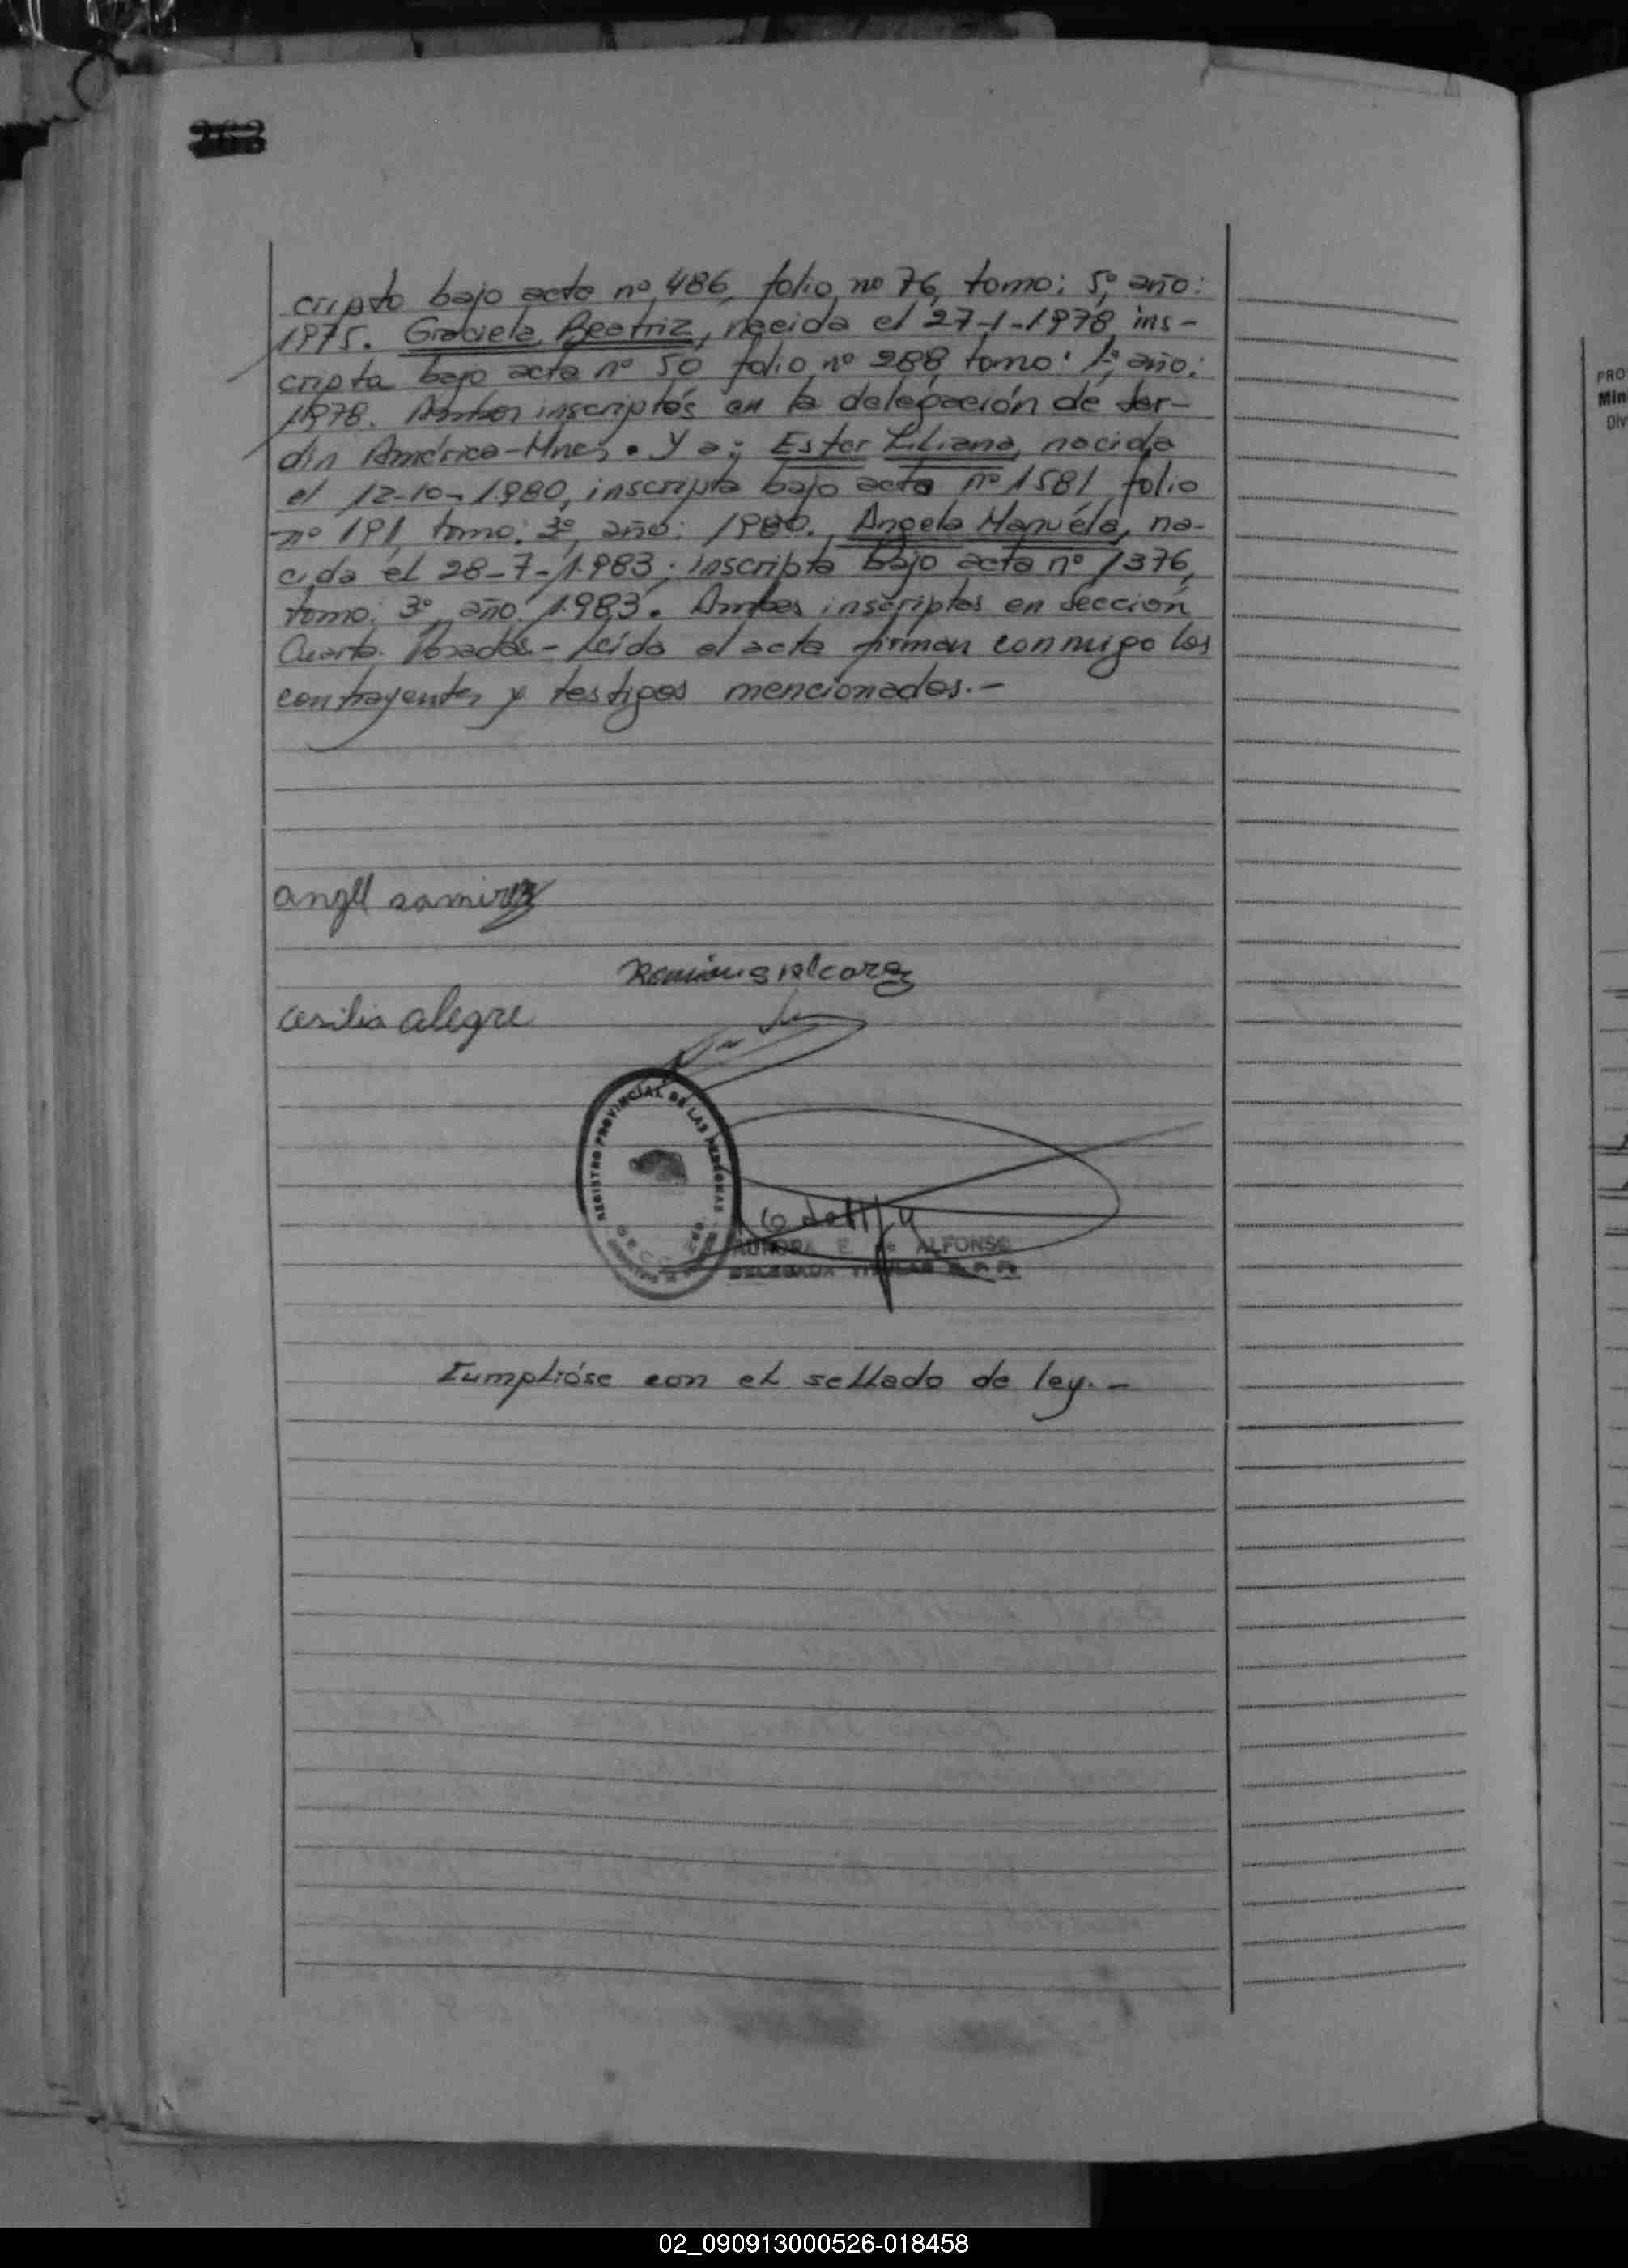 263
cripto bajo acta nº 486, folio nº 76, tomo: 5º, año:
1975. Graciela Beatriz, nacida el 27-1-1978, ins-
cripta bajo acta nº 50 folio nº 288, tomo: 1º, año:
1978. Ambos inscriptos en la delegación de Jar-
din América-Mnes. Y a: Ester Liliana, nacida
el 12-10-1980, inscripta bajo acta nº 1581, folio
nº 191, tomo: 3º, año: 1980. Angela Manuela, na-
cida el 28-7-1983; inscripta bajo acta nº 1376,
tomo: 3º, año: 1983. Ambas inscriptas en Sección
Cuarta. Posadas- Leída el acta firman conmigo los
contrayentes y testigos mencionados.-
angel ramirez
alcaraz
cesilia alegre
REGISTRO PROVINCIAL DE LAS PERSONAS
AURORA E. de ALFONSO
DELEGADA TITULAR R. P. P.
Cumplióse con el sellado de ley.-
PRO
Min
Div
02_090913000526-018458